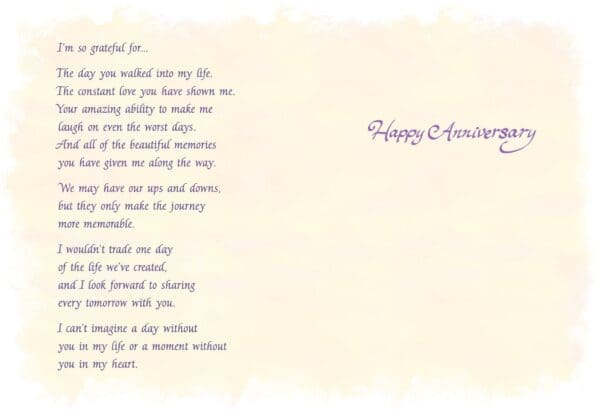 I'm so grateful for...
The day you walked into my life.
The constant love you have shown me.
Your amazing ability to make me
laugh on even the worst days.
And all of the beautiful memories
you have given me along the way.
We may have our ups and downs,
but they only make the journey
more memorable.
I wouldn't trade one day
of the life we've created,
and I look forward to sharing
every tomorrow with you.
I can't imagine a day without
you in my life or a moment without
you in my heart.
Happy Anniversary